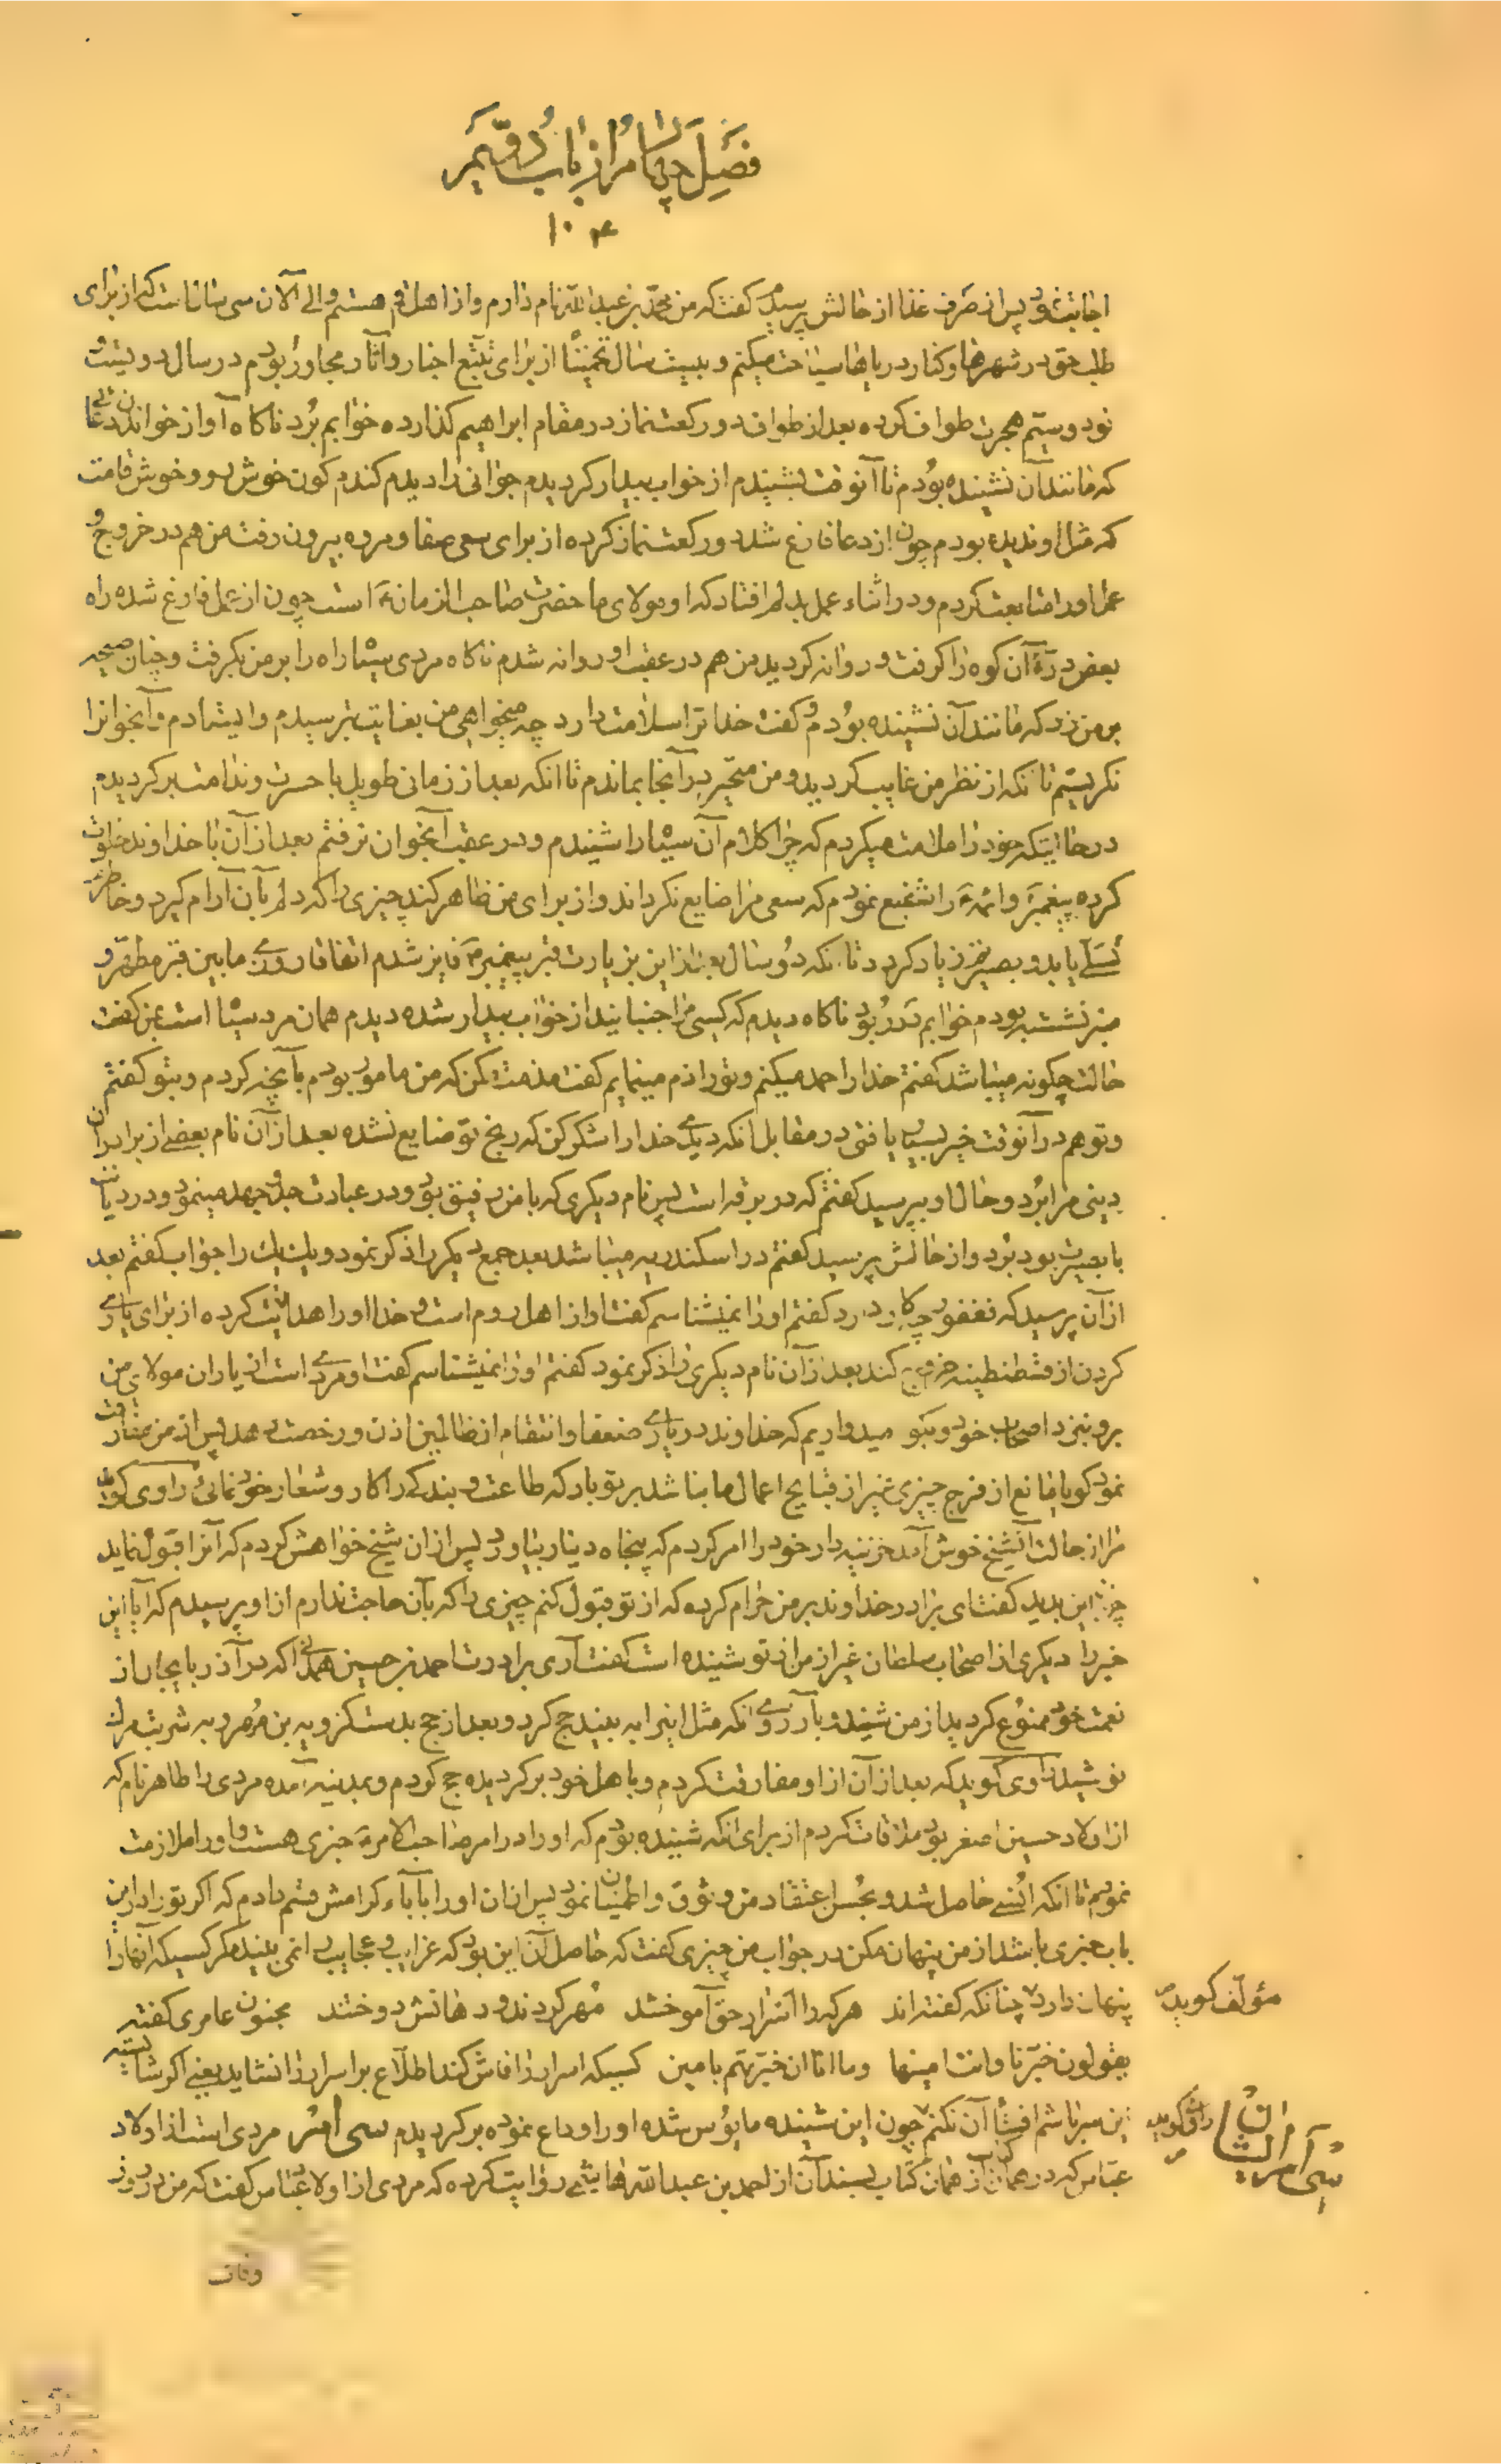 فصل چهارم از باب دویم
۱۰۴
اجابت نمود پس از صرف غذا از حالش پرسیدم گفت که من محمد بن عبدالله نام دارم و از اهل قم هستم و الی الآن سی سال است که از برای
طلب حق در شهرها و کنار دریاها سیاحت میکنم و بیست سال تخمیناً از برای تتبع اخبار و آثار مجاور بودم در سال دویست و
نود و سیّم هجرت طواف کرده بعد از طواف دو رکعت نماز در مقام ابراهیم گذارده خوابم برد ناگاه آواز خواندن دعائی
که مانند آن نشنیده بودم تا آنوقت بشنیدم از خواب بیدار گردیدم جوانی را دیدم گندم گون خوش رو و خوش قامت
که مثل او ندیده بودم چون از دعا فارغ شد دو رکعت نماز کرده از برای سعی صفا و مروه بیرون رفت من هم در خروج و
عمل او را متابعت کردم و در اثناء عمل بدلم افتاد که او مولای ما حضرت صاحب الزمان است چون از عمل فارغ شده راه
بعض درّۀ آن کوه را گرفت و روانه گردید من هم در عقب او روانه شدم ناگاه مردی سیاه راه را بر من بگرفت و چنان صیحه
بر من زد که مانند آن نشنیده بودم و گفت خدا ترا سلامت دارد چه میخواهی من بغایت بترسیدم و ایستادم و آنجوانرا
نگریستم تا انکه از نظر من غایب گردید و من متحیر در آنجا بماندم تا انکه بعد از زمانی طویل با حسرت و ندامت برگردیدم
در حالتیکه خود را ملامت میکردم که چرا کلام آن سیاه را شنیدم و در عقب آنجوان نرفتم بعد از آن با خداوند خلوت
کرده پیغمبر و ائمه را شفیع نمودم که سعی مرا ضایع نگرداند و از برای من ظاهر کند چیزی را که دلم بآن آرام گیرد و خاطرم
تسلی یابد و بصیرتم زیاد گردد تا انکه دو سال بعد از این بزیارت قبر پیغمبر فایز شدم اتفاقا روزی مابین قبر مطهر و
منبر نشسته بودم خوابم در ربود ناگاه دیدم که کسی مرا جنبانید از خواب بیدار شده دیدم همان مرد سیاه است بمن گفت
حالت چگونه میباشد گفتم خدا را حمد میکنم و تو را ذم مینمایم گفت مذمت مکن که من مامور بودم بآنچه کردم و بتو گفتم
و تو هم در آنوقت خیر بسیار یافتی در مقابل انکه دیدی خدا را شکر کن که رنج تو ضایع نشده بعد از آن نام بعضی از برادران
دینی مرا برد و حال او بپرسید گفتم که در برقه است پس نام دیگری که با من رفیق بود و در عبادت جد و جهد مینمود و در دیانت
با بصیرت بود برد و از حالش پرسید گفتم در اسکندریه میباشد بعد جمع دیگر را ذکر نمود و یک یک را جواب گفتم بعد
از آن پرسید که فغفور چه کار دارد گفتم او را نمیشناسم گفت او از اهل روم است و خدا او را هدایت کرده از برای یاری
کردن از قسطنطنیه خروج کند بعد از آن نام دیگری را ذکر نمود گفتم او را نمیشناسم گفت او مردی است از یاران مولای من
برو بنزد اصحاب خود و بگو امیدواریم که خداوند در یاری ضعفا و انتقام از ظالمین اذن و رخصت دهد پس از من مفارقت
نمود گویا مانع از فرج چیزی غیر از قبایح اعمال ما نباشد بر تو باد که طاعت و بندگی را کار و شعار خود نمائی راوی گوید
مرا از حالت آنشیخ خوش آمد خزینه دار خود را امر کردم که پنجاه دینار بیاورد پس از ان شیخ خواهش کردم که آنرا قبول نماید
چون این بدید گفت ای برادر خداوند بر من حرام کرده که از تو قبول کنم چیزی را که بآن حاجت ندارم از او پرسیدم که آیا این
خبر را دیگری از اصحاب سلطان غیر از من از تو شنیده است گفت آری برادرت احمد بن حسین همدانی که در آذربایجان از
نعمت خود ممنوع گردید از من شنید و بآرزوی انکه مثل اینرا به بیند حج کرد و بعد از حج بدست کزویه بن مهرویه شربت مرگ
نوشید راوی گوید که بعد از آن از او مفارقت کردم و باهل خود برگردیده حج کردم و بمدینه آمده مردی را طاهر نام که
از اولاد حسین اصغر بود ملاقات کردم از برای انکه شنیده بودم که او را در امر صاحب الامر خبری هست و او را ملازمت
نمودم تا انکه انسی حاصل شد و بحسن اعتقاد من وثوق و اطمینان نمود پس از ان او را بآباء کرامش قسم دادم که اگر تو را در این
باب خبری باشد از من پنهان مکن در جواب من چیزی گفت که حاصل آن این بود که غرایب و عجایب را نمی بیند مگر کسیکه آنها را
پنهان دارد چنانکه گفته اند هر که را اسرار حق آموختند مهر کردند و دهانش دوختند مجنون عامری گفته
مؤلف گوید
یقولون خبرنا وانت امینها وما انا ان خبرتهم بامین کسیکه اسرار را فاش کند اطلاع بر اسرار را نشاید یعنی اگر شایسته
این سر باشم افشاء آن نکنم چون این شنیده مایوس شده او را وداع نموده برگردیدم سی امر مردی است از اولاد
سی امر الشان
راوی گوید
عباس که در همان از همان کتاب بسند آن از احمد بن عبدالله هاشمی روایت کرده که مردی از اولاد عباس گفت که من در روز
وفات